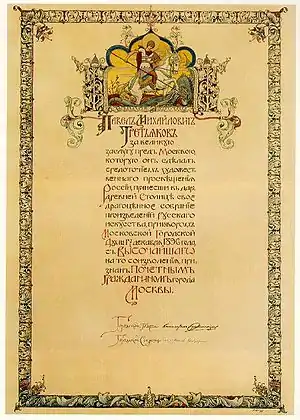 Павелъ Михайловичъ
Третьяковъ
за великую
заслугу предъ Москвою,
которую онъ сдѣлалъ
средоточіемъ художест-
веннаго просвѣщенія
Россіи, принеся въ даръ
древней столицѣ свое
драгоцѣнное собраніе
произведеній русскаго
искусства, приговоромъ
Московской Городской
Думы, декабря 1896 года,
съ Высочайшаго
на то соизволенія, при-
знанъ Почетнымъ
Гражданиномъ города
Москвы.
Городской Голова
Городской Секретарь